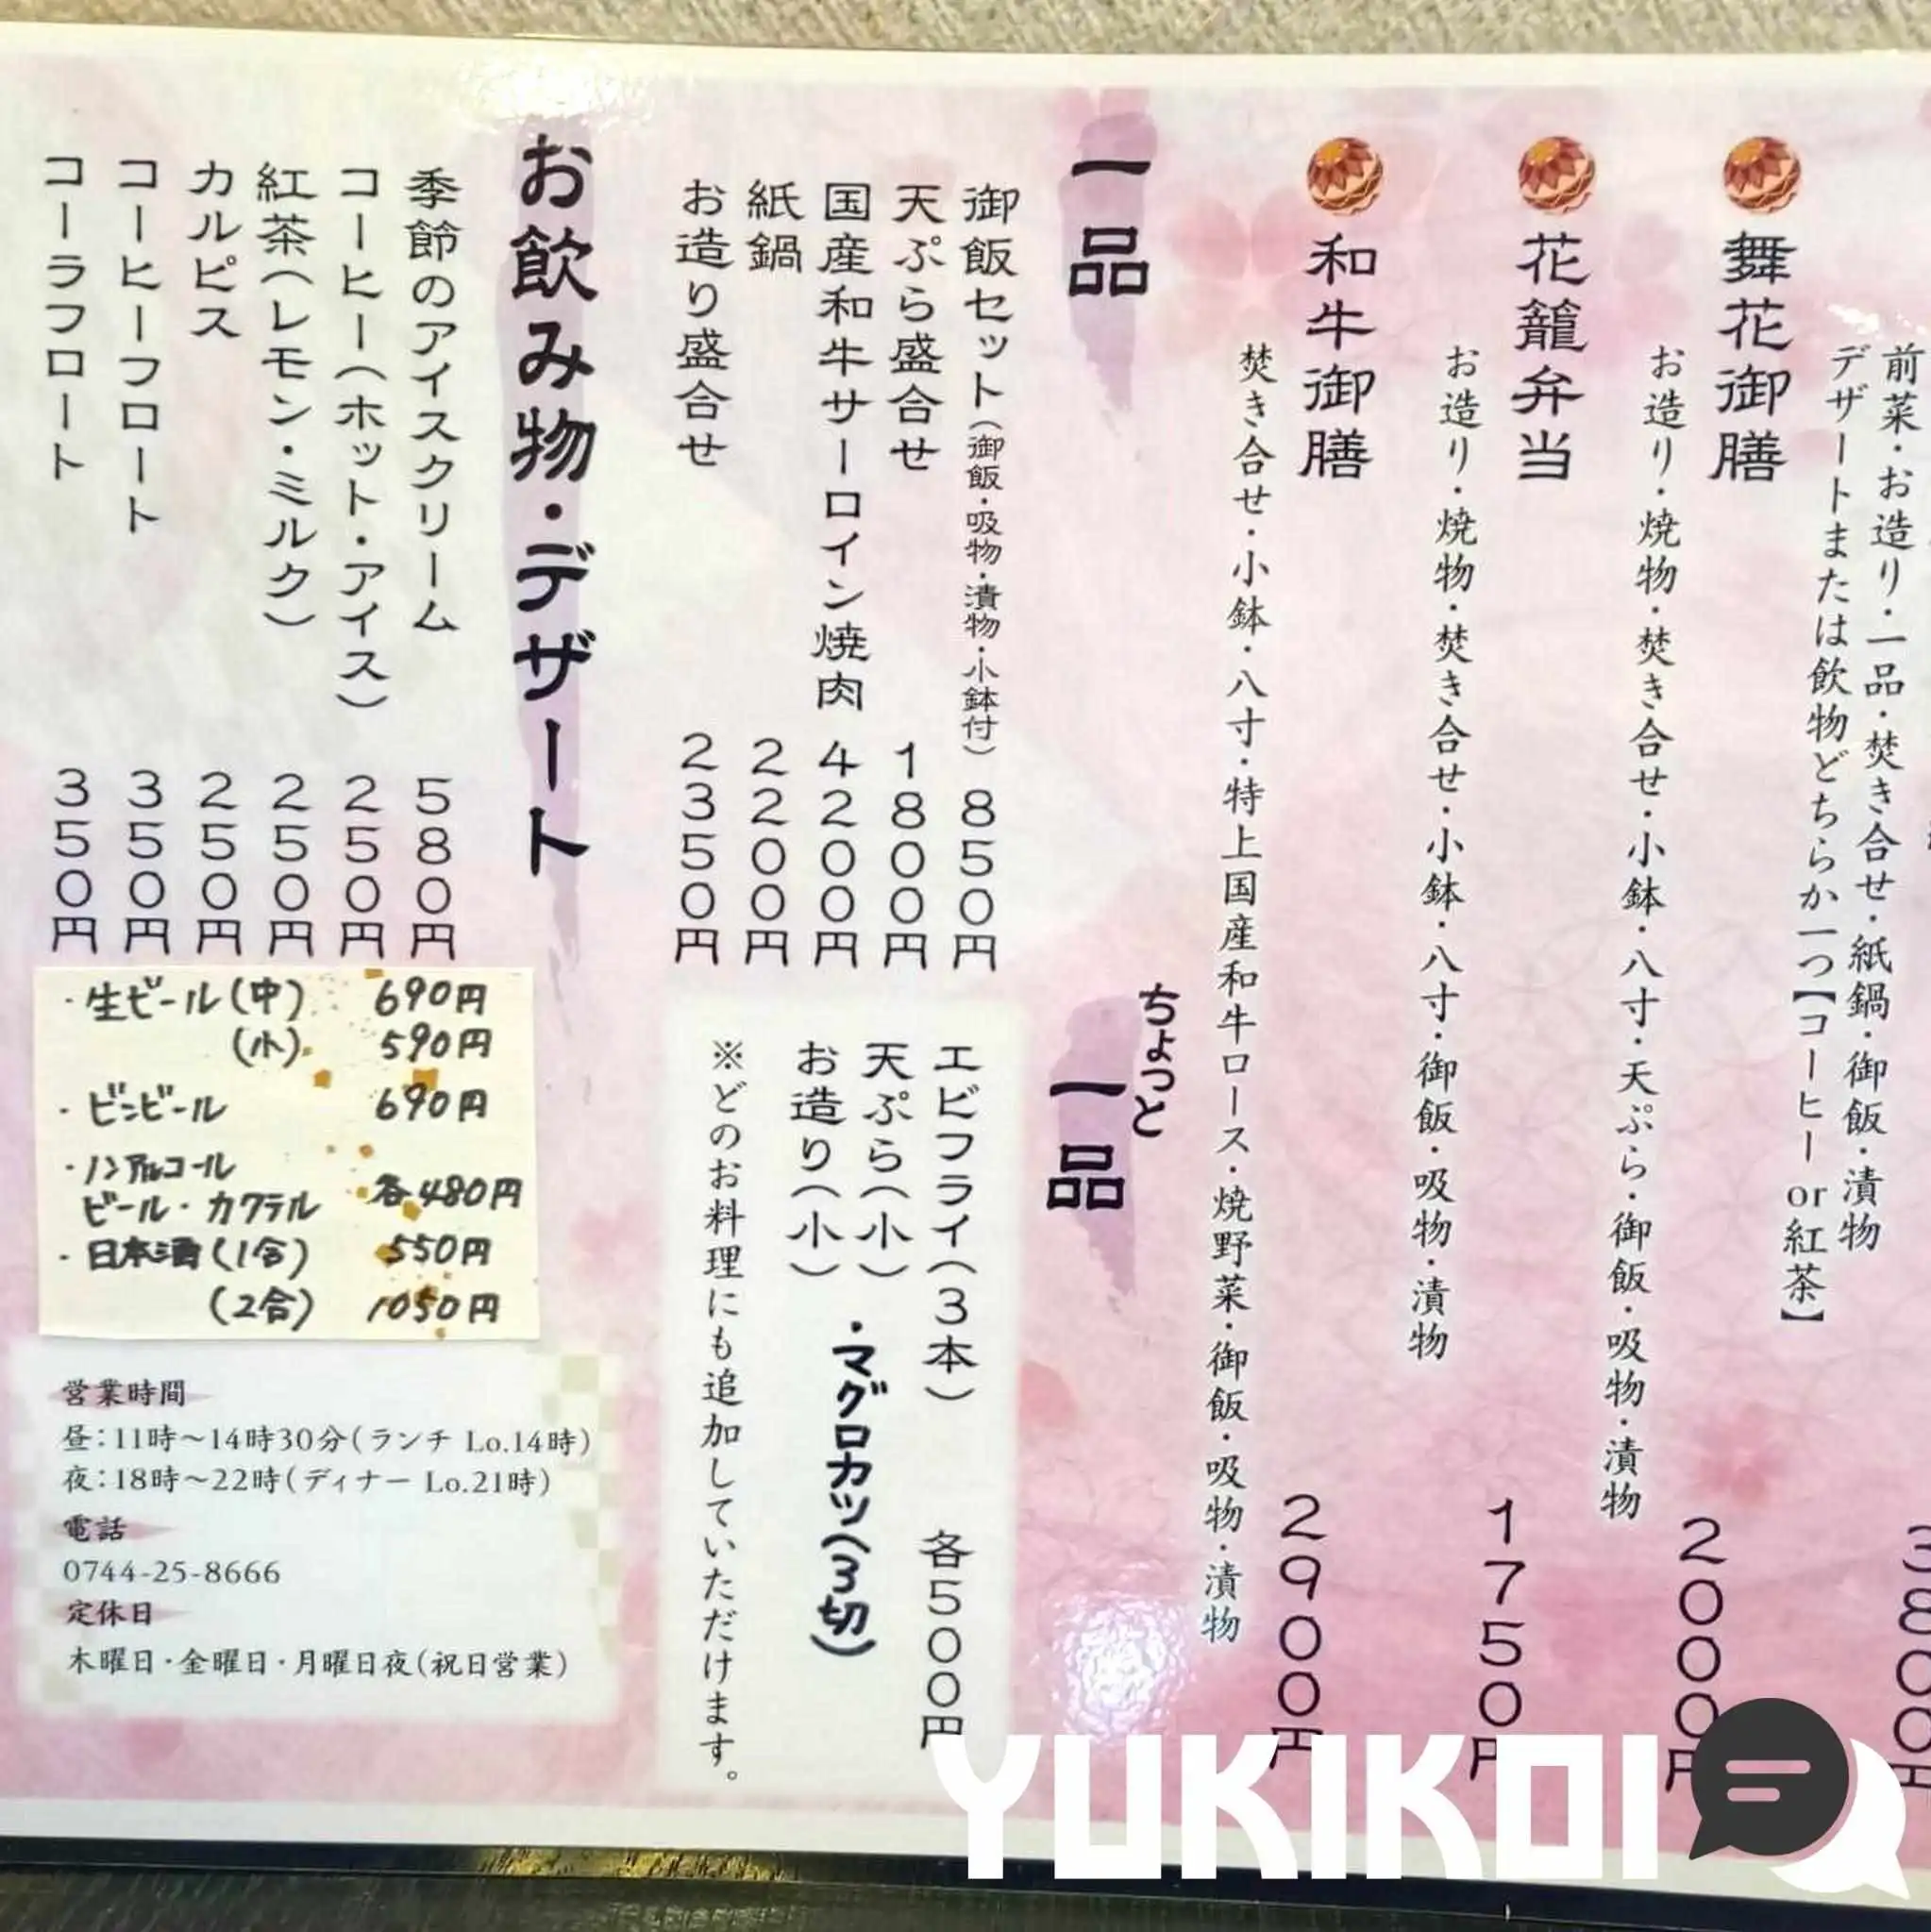 前菜・お造り・一品・焚き合せ・紙鍋・御飯・漬物
デザートまたは飲物どちらか一つ【コーヒー or 紅茶】
舞花御膳
2000円
お造り・焼物・焚き合せ・小鉢・八寸・天ぷら・御飯・吸物・漬物
花籠弁当
1750円
お造り・焼物・焚き合せ・小鉢・八寸・御飯・吸物・漬物
和牛御膳
2900円
焚き合せ・小鉢・八寸・特上国産和牛ロース・焼野菜・御飯・吸物・漬物
一品
御飯セット(御飯・吸物・漬物・小鉢付) 850円
天ぷら盛合せ 1800円
国産和牛サーロイン焼肉 4200円
紙鍋 2200円
お造り盛合せ 2350円
ちょっと
一品
エビフライ(3本) 各500円
天ぷら(小)
・マグロカツ(3切)
お造り(小)
※どのお料理にも追加していただけます。
お飲み物・デザート
季節のアイスクリーム 580円
コーヒー(ホット・アイス) 250円
紅茶(レモン・ミルク) 250円
カルピス 250円
コーヒーフロート 350円
コーラフロート 350円
・生ビール(中) 690円
(小) 590円
・ビンビール 690円
・ノンアルコール
ビール・カクテル 各480円
・日本酒(1合) 550円
(2合) 1050円
営業時間
昼:11時〜14時30分(ランチ Lo.14時)
夜:18時〜22時(ディナー Lo.21時)
電話
0744-25-8666
定休日
木曜日・金曜日・月曜日夜(祝日営業)
YUKIKOI